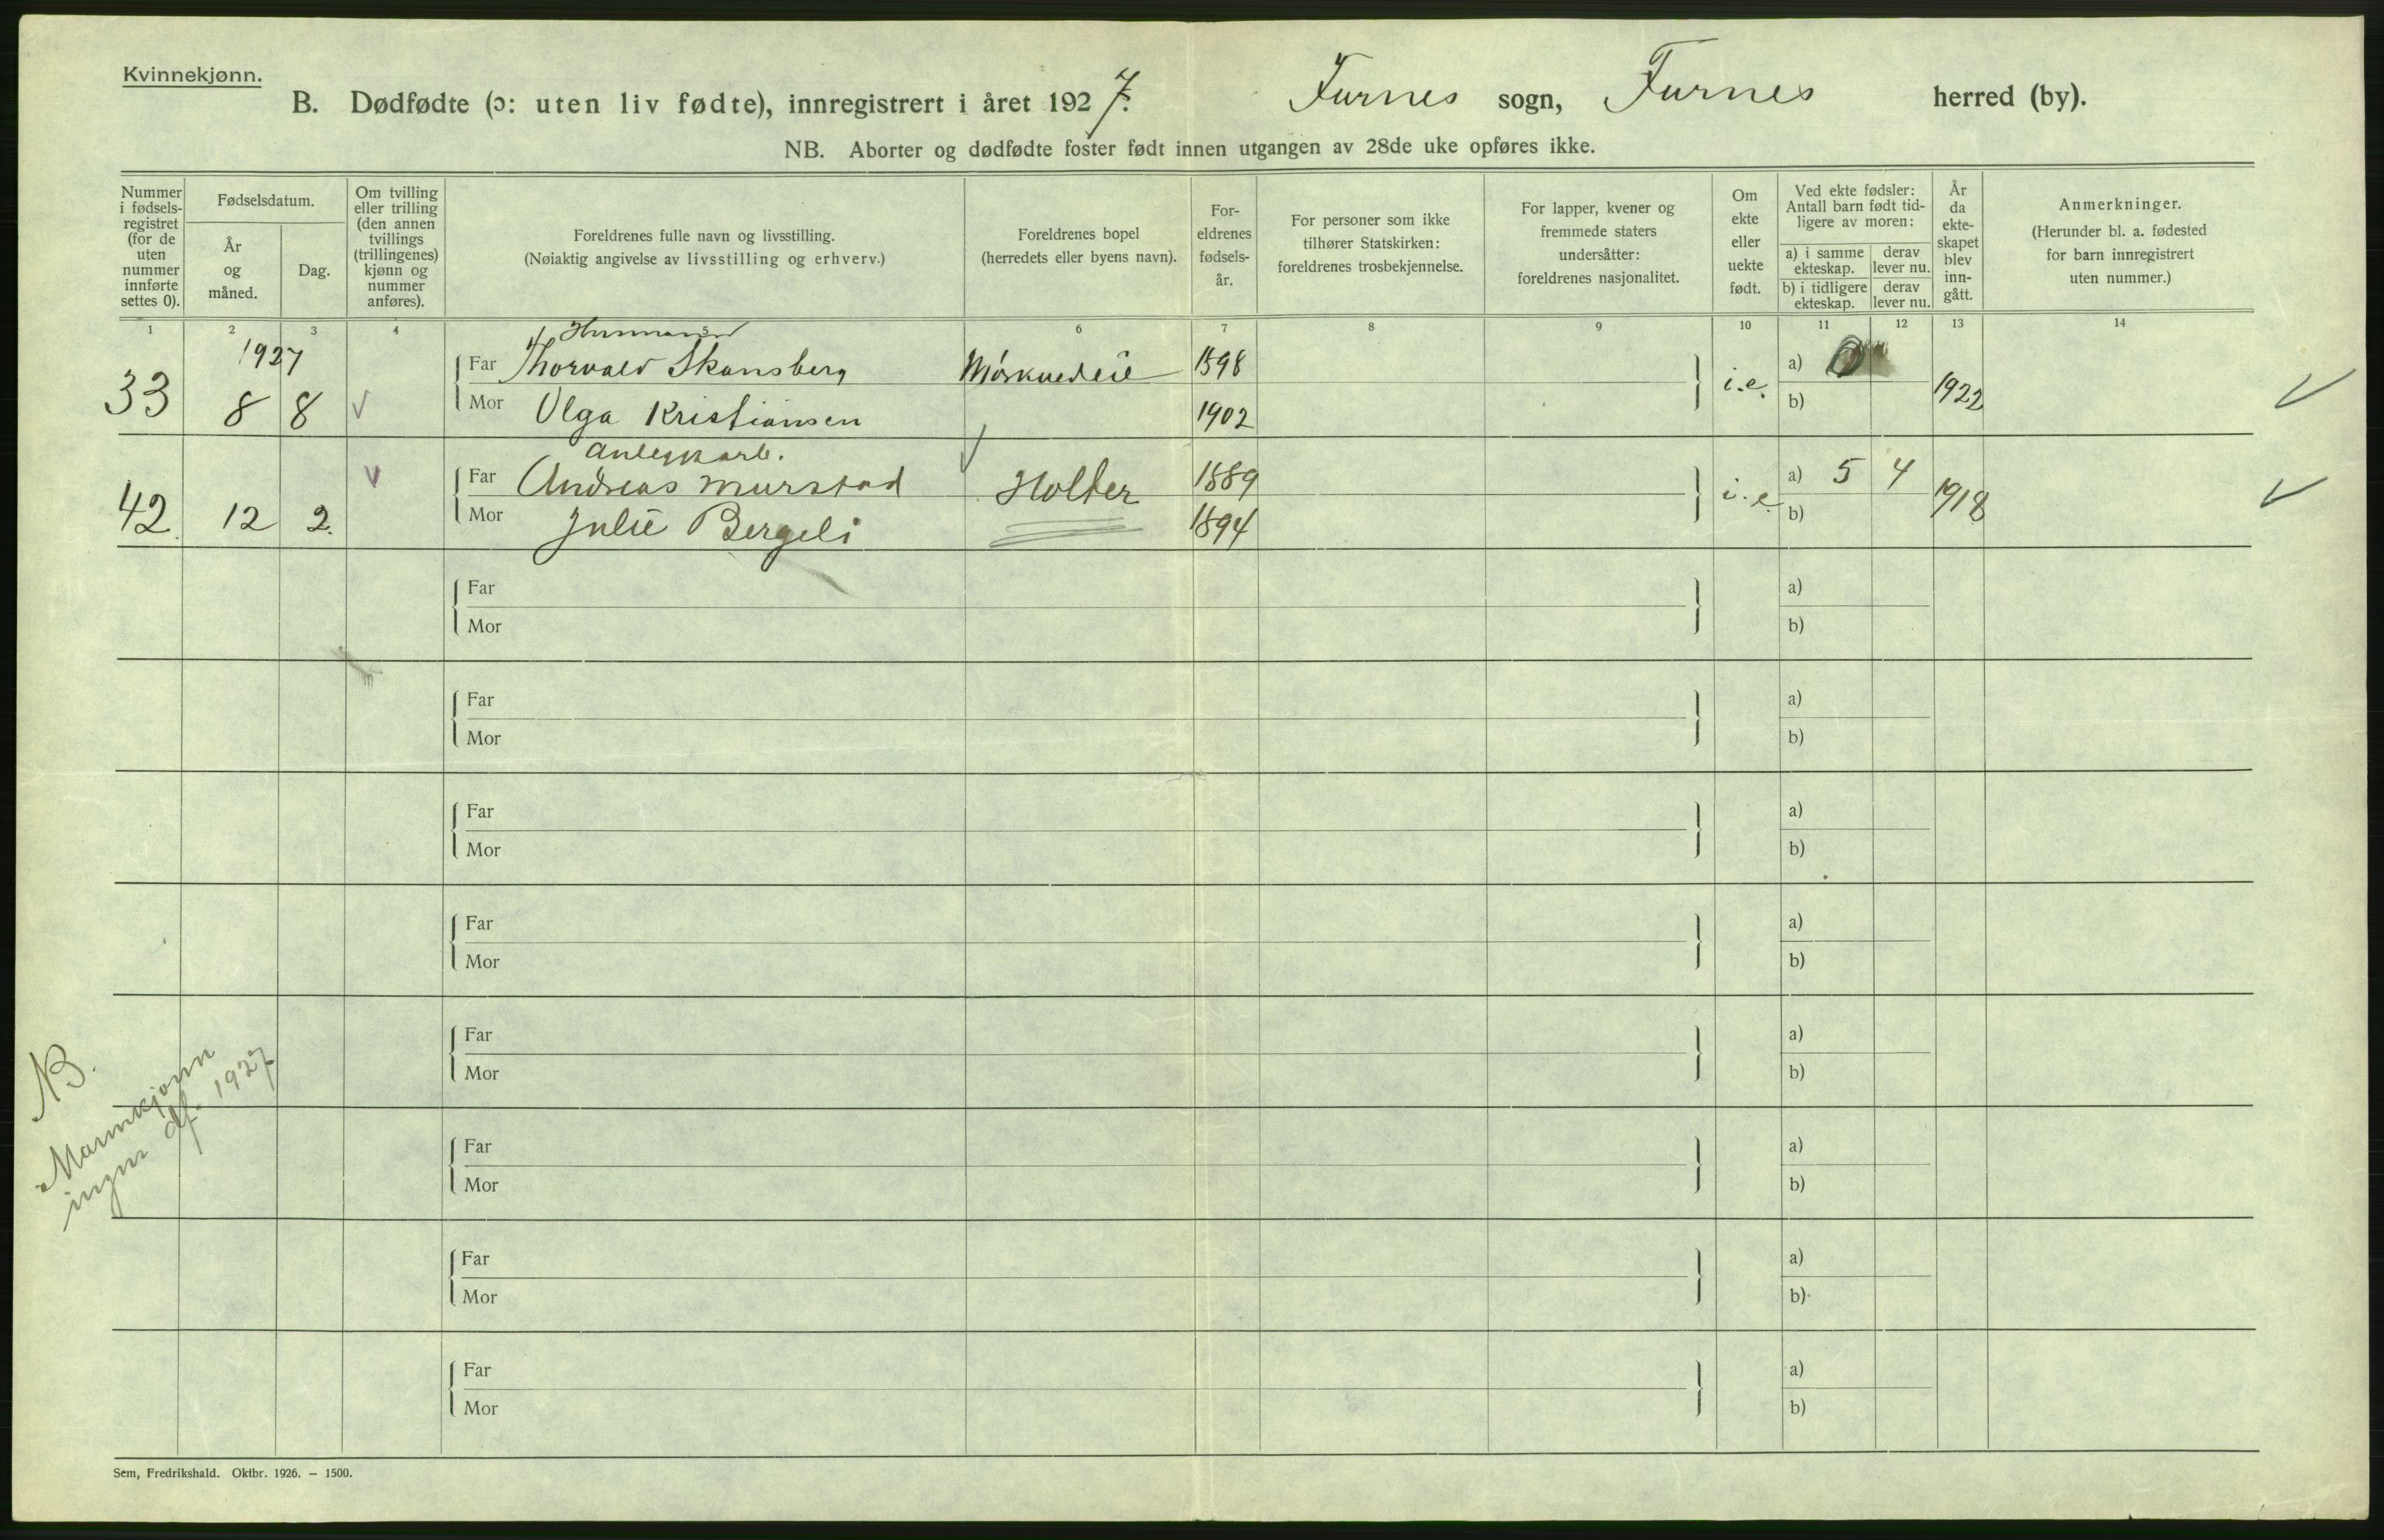 Kvinnekjønn.
B. Dødfødte (ɔ: uten liv fødte), innregistrert i året 1927. Furnes sogn, Furnes herred (by).
NB. Aborter og dødfødte foster født innen utgangen av 28de uke opføres ikke.
Nummer i fødsels-registret (for de uten nummer innførte settes 0).
Fødselsdatum.
År og måned.
Dag.
Om tvilling eller trilling (den annen tvillings (trillingenes) kjønn og nummer anføres).
Foreldrenes fulle navn og livsstilling.
(Nøiaktig angivelse av livsstilling og erhverv.)
Foreldrenes bopel
(herredets eller byens navn).
For-eldrenes fødsels-år.
For personer som ikke tilhører Statskirken: foreldrenes trosbekjennelse.
For lapper, kvener og fremmede staters undersåtter: foreldrenes nasjonalitet.
Om ekte eller uekte født.
Ved ekte fødsler: Antall barn født tid-ligere av moren:
a) i samme ekteskap.
derav lever nu.
b) i tidligere ekteskap.
derav lever nu.
År da ekte-skapet blev inn-gått.
Anmerkninger.
(Herunder bl. a. fødested for barn innregistrert uten nummer.)
1 2 3 4 5 6 7 8 9 10 11 12 13 14
1927
33 8 8 V
Far Thorvald Skansberg 1898 i.e. a) 0 1922 V
Mor Olga Kristiansen 1902 b)
anleggsarb.
42. 12 2. V
Far Andreas Murstad Holter 1889 i.e. a) 5 4 1918 V
Mor Julie Bergeli 1894 b)
Far a)
Mor b)
Far a)
Mor b)
Far a)
Mor b)
Far a)
Mor b)
Far a)
Mor b)
Far a)
Mor b)
Far a)
Mor b)
Far a)
Mor b)
NB.
Mannkjønn
ingen df. 1927
Sem, Fredrikshald. Oktbr. 1926. — 1500.